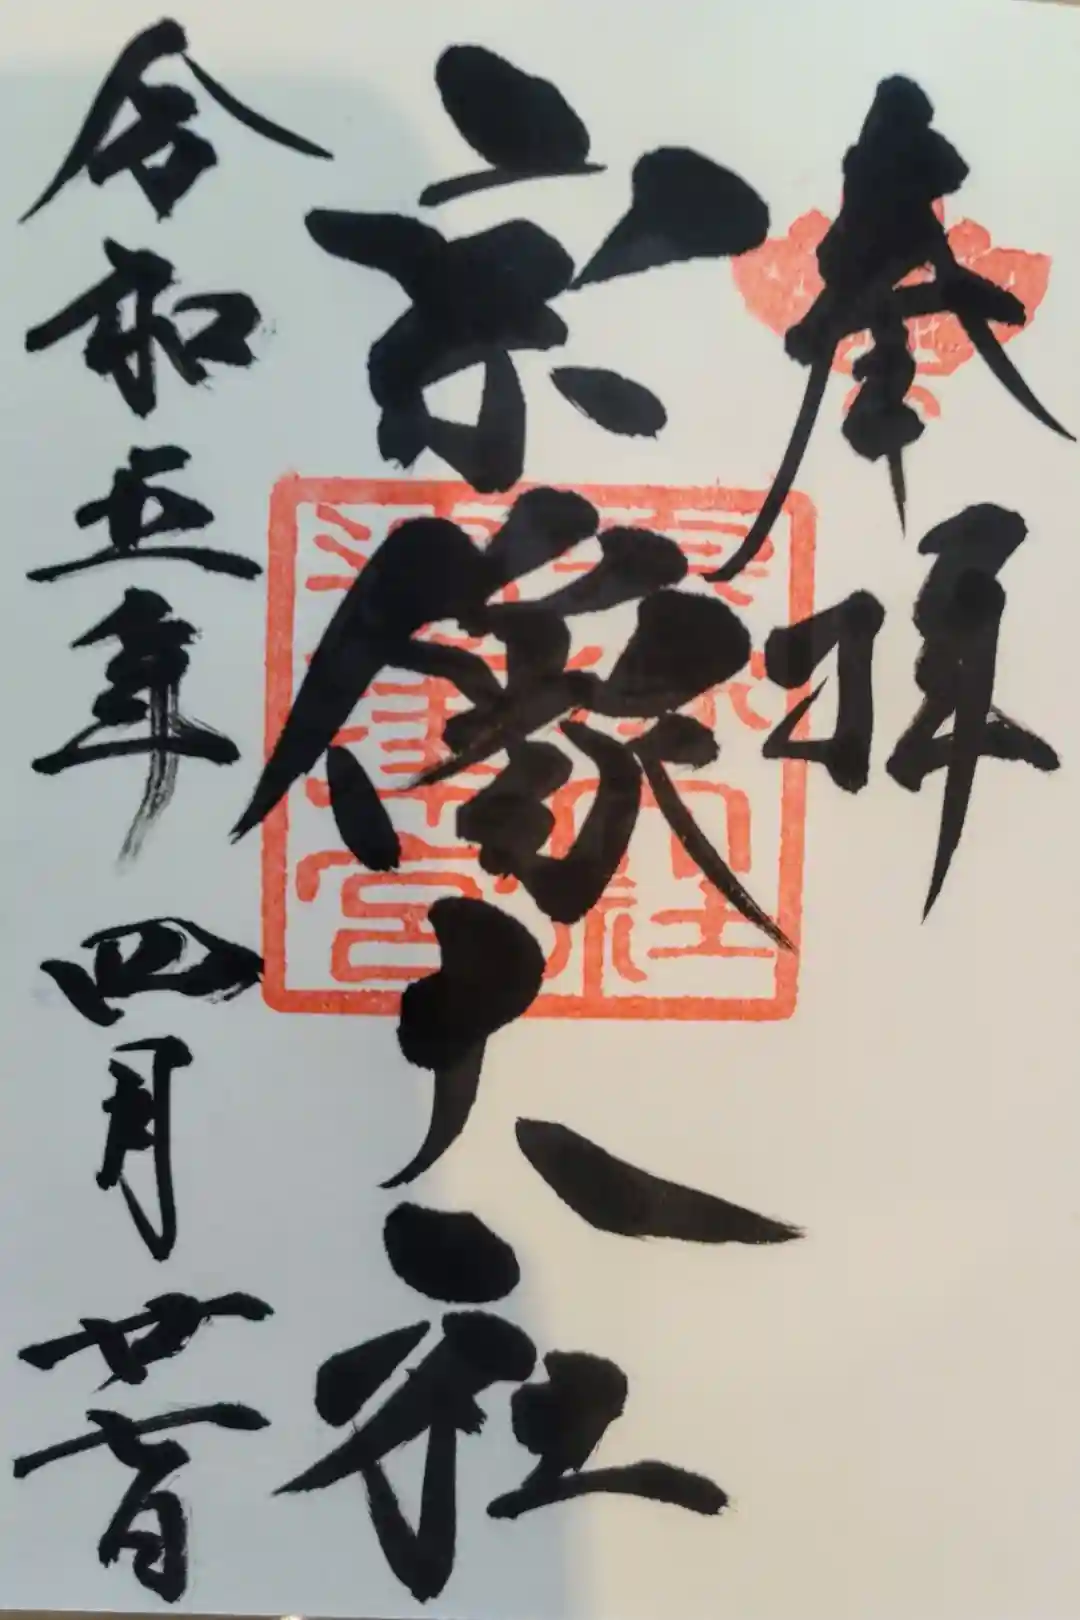 奉拝
宗像大社
令和五年四月廿七日